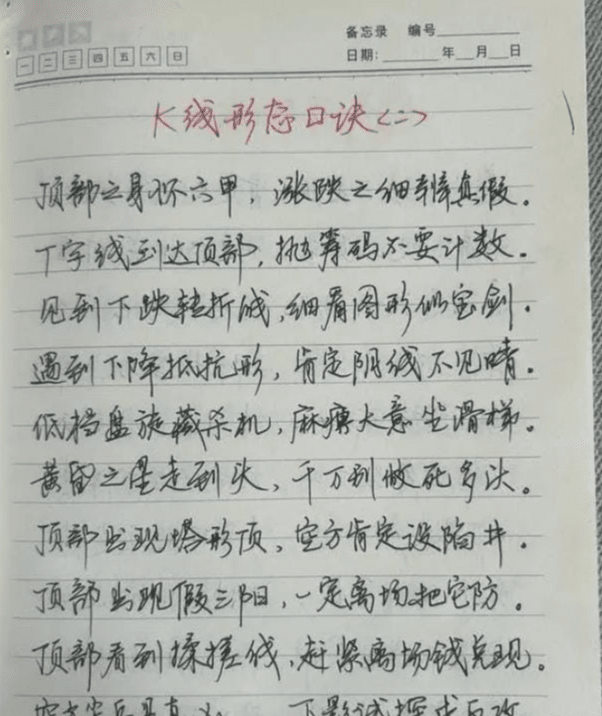 备忘录 编号
一 二 三 四 五 六 日
日期: 年 月 日
K线形态口诀<二>
顶部之身怀六甲，涨跌之细辨真假。
丁字线到达顶部，抛筹码不要计数。
见到下跌转折线，细看图形似宝剑。
遇到下降抵抗形，肯定阴线不见晴。
低档盘旋藏杀机，麻痹大意坐滑梯。
黄昏之星走到头，千万别做死多头。
顶部出现塔形顶，空方肯定设陷井。
顶部出现假三阳，一定离场把它防。
顶部看到揉搓线，赶紧离场钱兑现。
下影试探